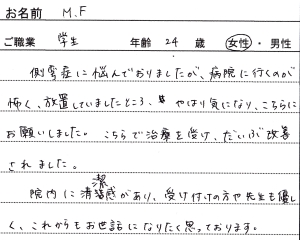 お名前 M.F
ご職業 学生 年齢 24 歳 女性・男性
側弯症に悩んでおりましたが、病院に行くのが
怖く、放置していましたところ、やはり気になり、こちらに
お願いしました。こちらで治療を受け、だいぶ改善
されました。
院内に清潔感があり、受け付けの方や先生も優し
く、これからもお世話になりたく思っております。